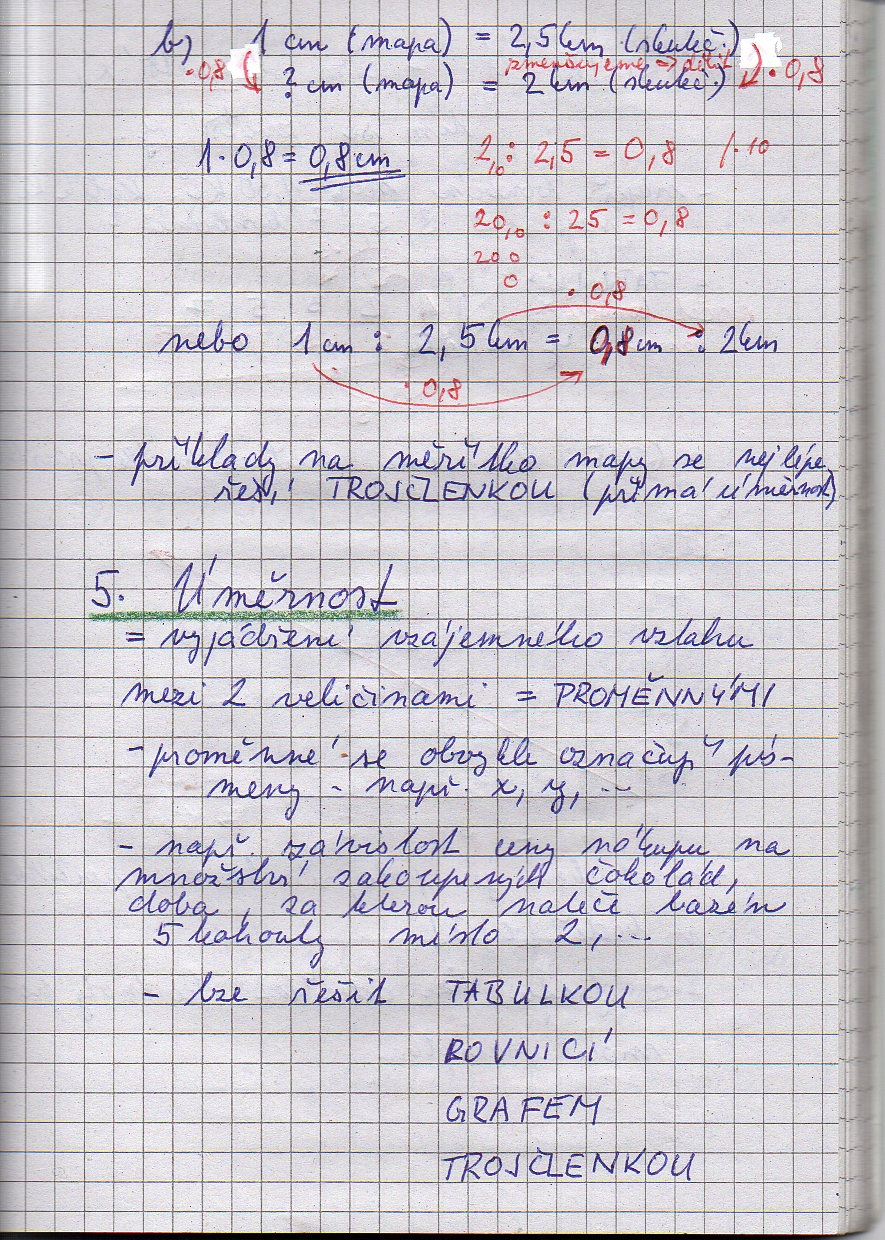 b) 1 cm (mapa) = 2,5 km (skuteč.)
zmenšujeme => dělit
·0,8 ? cm (mapa) = 2 km (skuteč.) ·0,8
1·0,8 = 0,8 cm 2,0 : 2,5 = 0,8 /·10
20,0 : 25 = 0,8
200
0
· 0,8
nebo 1 cm : 2,5 km = 0,8 cm : 2 km
· 0,8
- příklady na měřítko mapy se nejlépe
řeší TROJČLENKOU (přímá úměrnost)
5. Úměrnost
= vyjádření vzájemného vztahu
mezi 2 veličinami = PROMĚNNÝMI
- proměnné se obvykle označují pís-
meny - např. x, y, ...
- např. závislost ceny nákupu na
množství zakoupených čokolád,
doba, za kterou nateče bazén
5 kohouty místo 2, ...
- lze řešit TABULKOU
ROVNICÍ
GRAFEM
TROJČLENKOU